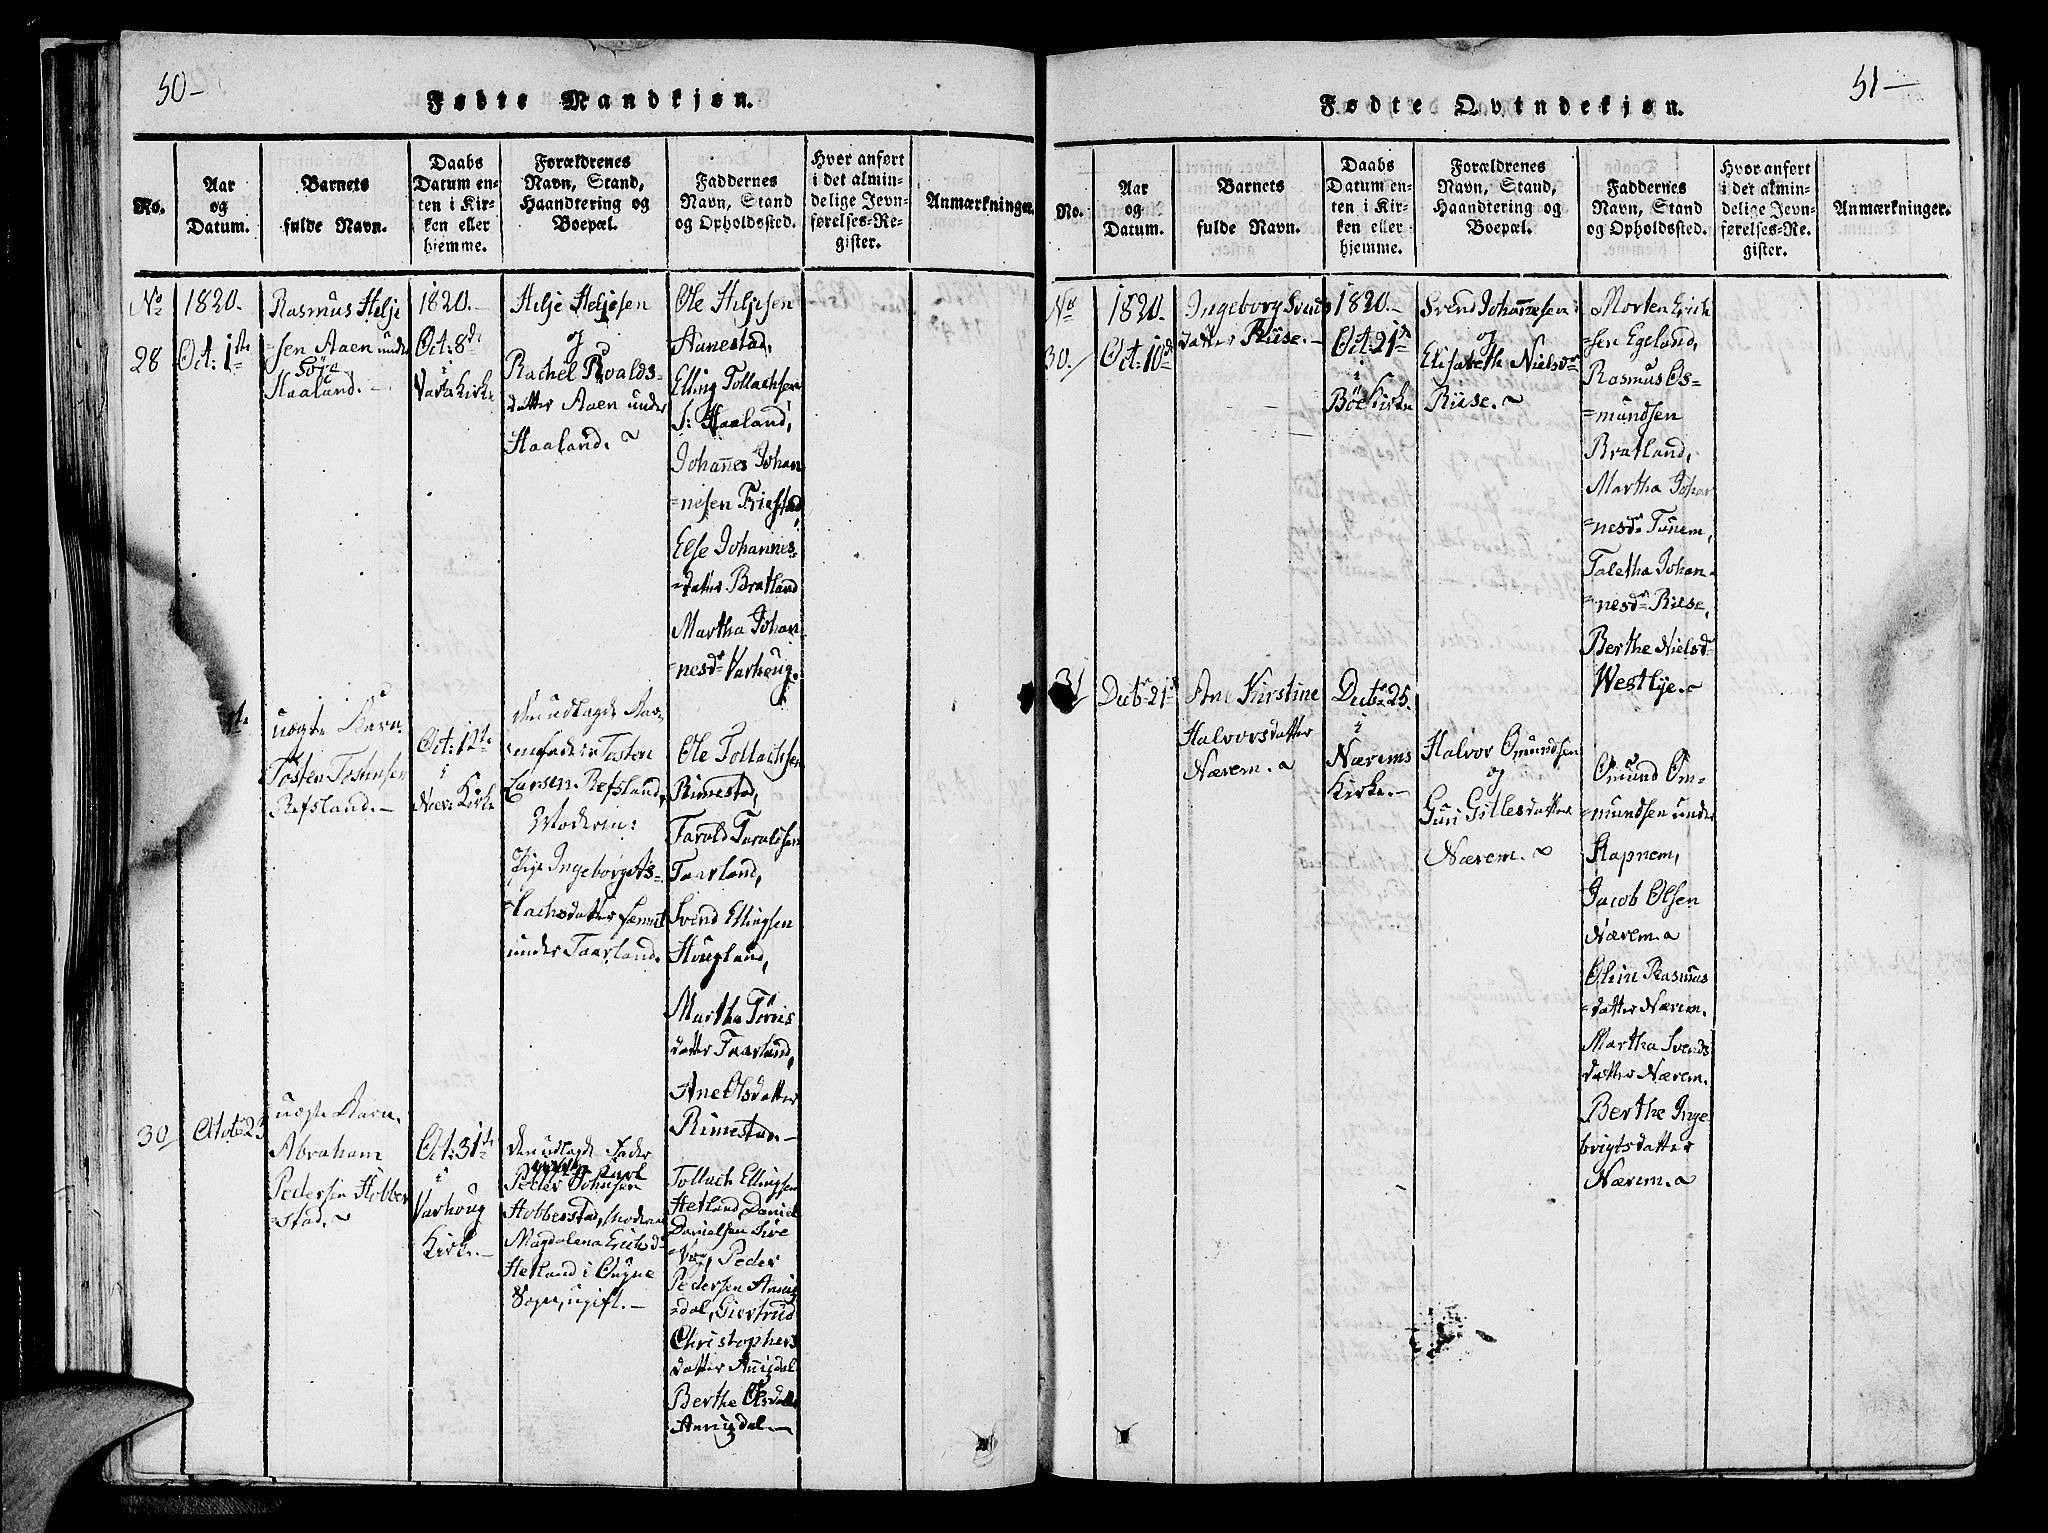 50-
Fødte Mandkjøn.
No.
Aar
og
Datum.
Barnets
fulde Navn.
Daabs
Datum en-
ten i Kir-
ken eller
hjemme.
Forældrenes
Navn, Stand,
Haandtering og
Boepæl.
Faddernes
Navn, Stand
og Opholdssted.
Hvor anført
i det almin-
delige Jevn-
førelses-Re-
gister.
Anmærkninger.
No
28
1820.
Oct: 1ste
Rasmus Helje
=sen Aaen under
Haaland.-
1820.-
Oct: 8de
i
Kirke
Helje Heljesen
og
Rachel Roalds-
datter Aaen under
Haaland.
Ole Heljesen
Aanestad,
Elling Tollachsen
S: Haaland,
Johannes Johan
=nesen Friestad
Else Johannes-
=datter Bratland
Martha Johan
=nesdr Varhoug.
uægte Barn.
Tosten Tostensen
Refsland.-
Oct: 12te
i
Nær: Kirke
den udlagde Bar-
=nefader Tosten
Larsen Refsland,
Moderen:
Pige Ingeborg As-
=lachsdatter
under Taarland.
Ole Tollachsen
Rimestad,
Tarald Taraldsen
Taarland,
Svend Ellingsen
Hougland,
Martha Tøris
datter Taarland,
Ane Olsdatter
Rimestad.-
30
Octobr 23
uægte Barn.
Abraham
Pedersen Hobber
=stad.
Oct: 31te
i
Varhoug
Kirke.-
den udlagde Fader
Peder Johnsen
Hobberstad, Moderen
Magdalena Erichsdr
Hetland i Ougne
Sogn, ugift.-
Tollach Ellingsen
Hetland, Daniel
Danielsen Sire
=vog, Peder
Pedersen Aniig
=dal, Giertrud
Christophers
datter Aniigdal
Berthe Olsdatter
Aniigdal.-
51-
Fødte Qvindekjøn.
No.
Aar
og
Datum.
Barnets
fulde Navn.
Daabs
Datum en-
ten i Kir-
ken eller
hjemme.
Forældrenes
Navn, Stand,
Haandtering og
Boepæl.
Faddernes
Navn, Stand
og Opholdssted.
Hvor anført
i det almin-
delige Jevn-
førelses-Re-
gister.
Anmærkninger.
No
30.
1820.
Oct: 10de
Ingeborg Svends
datter Riise.-
1820.-
Oct: 21de
i
Bøe Kirke
Svend Johannesen
og
Elisabeth Nielsdr
Riise.
Morten Erich
=sen Egeland,
Rasmus Os=
=mundsen
Bratland,
Martha Johan
=nesdr Tunem,
Taletha Johan-
=nesdr Riise,
Berthe Nielsd
Westlye.
31
Decbr 21de
Ane Kirstine
Halvorsdatter
Nærem.
Decbr 25.
i
Nærems
Kirke.-
Halvor Omundsen
og
Guri Gitlesdatter
Nærem.
Omund Om=
=mundsen under
Rapnem,
Jacob Olsen
Nærem.
Oline Rasmus
=datter Nærem.
Martha Svends
datter Nærem.
Berthe Inge
brigtsdatter
Nærem.